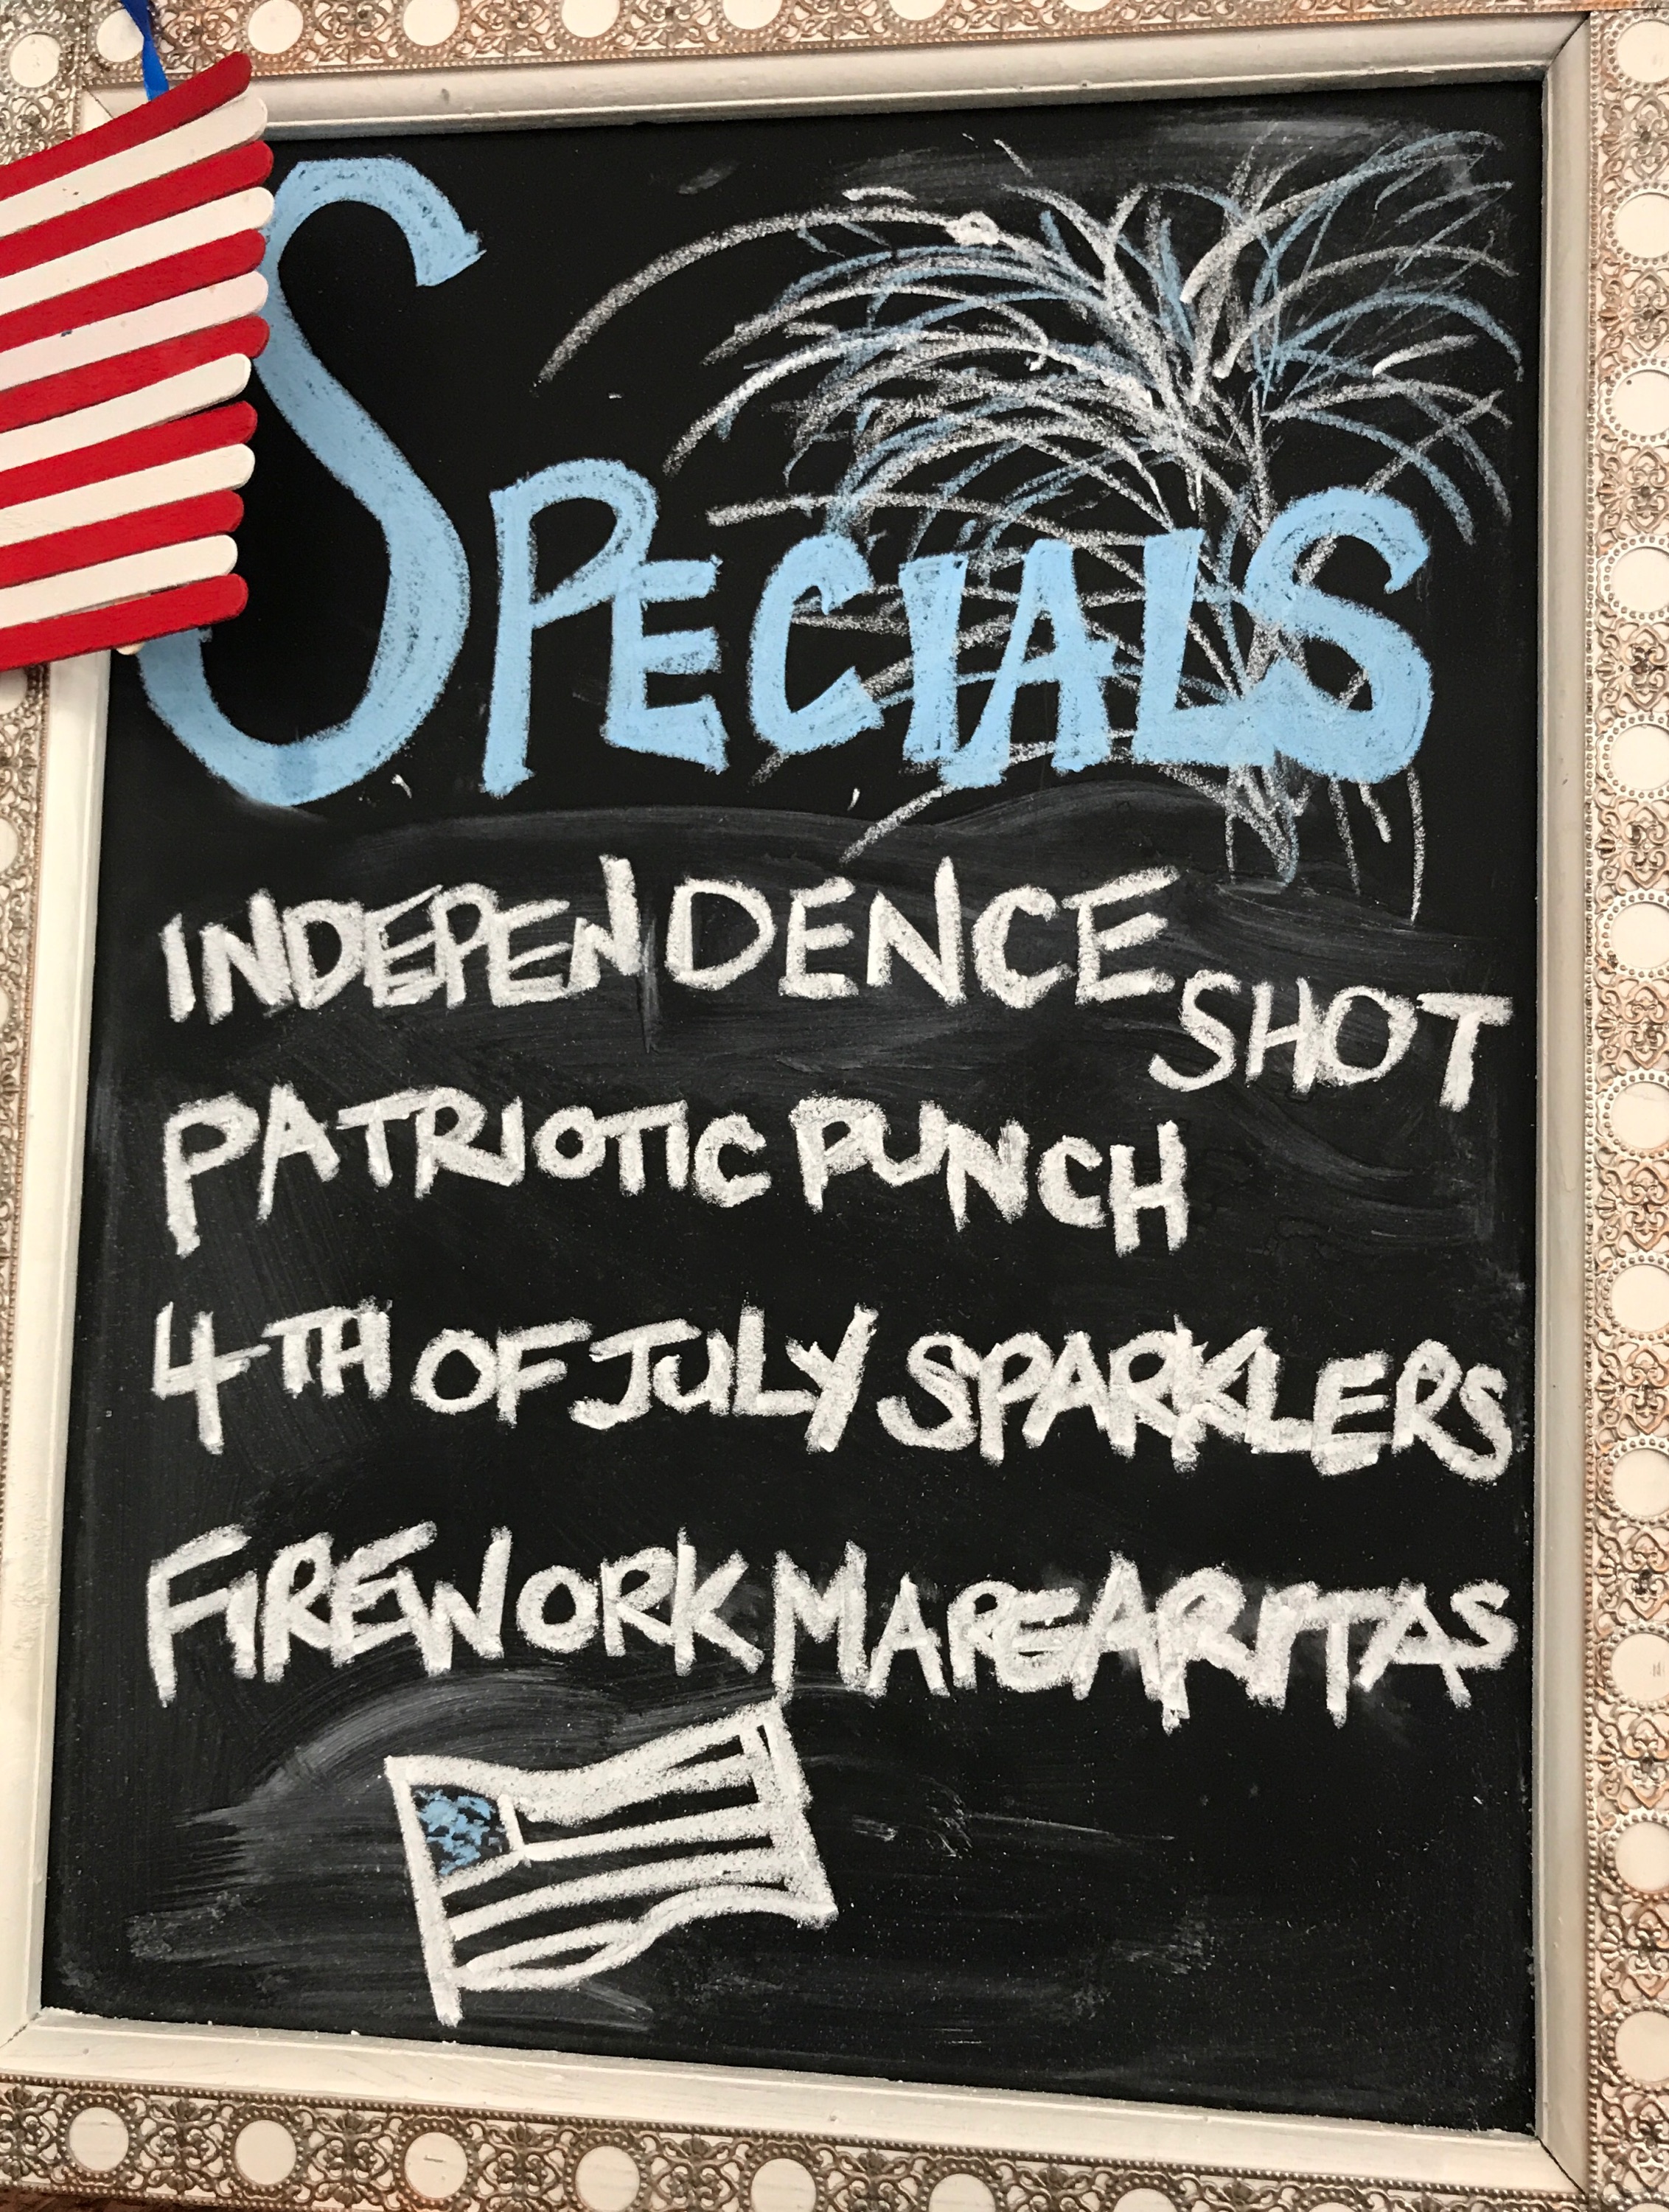 SPECIALS
INDEPENDENCE SHOT
PATRIOTIC PUNCH
4TH OF JULY SPARKLERS
FIREWORK MARGARITAS